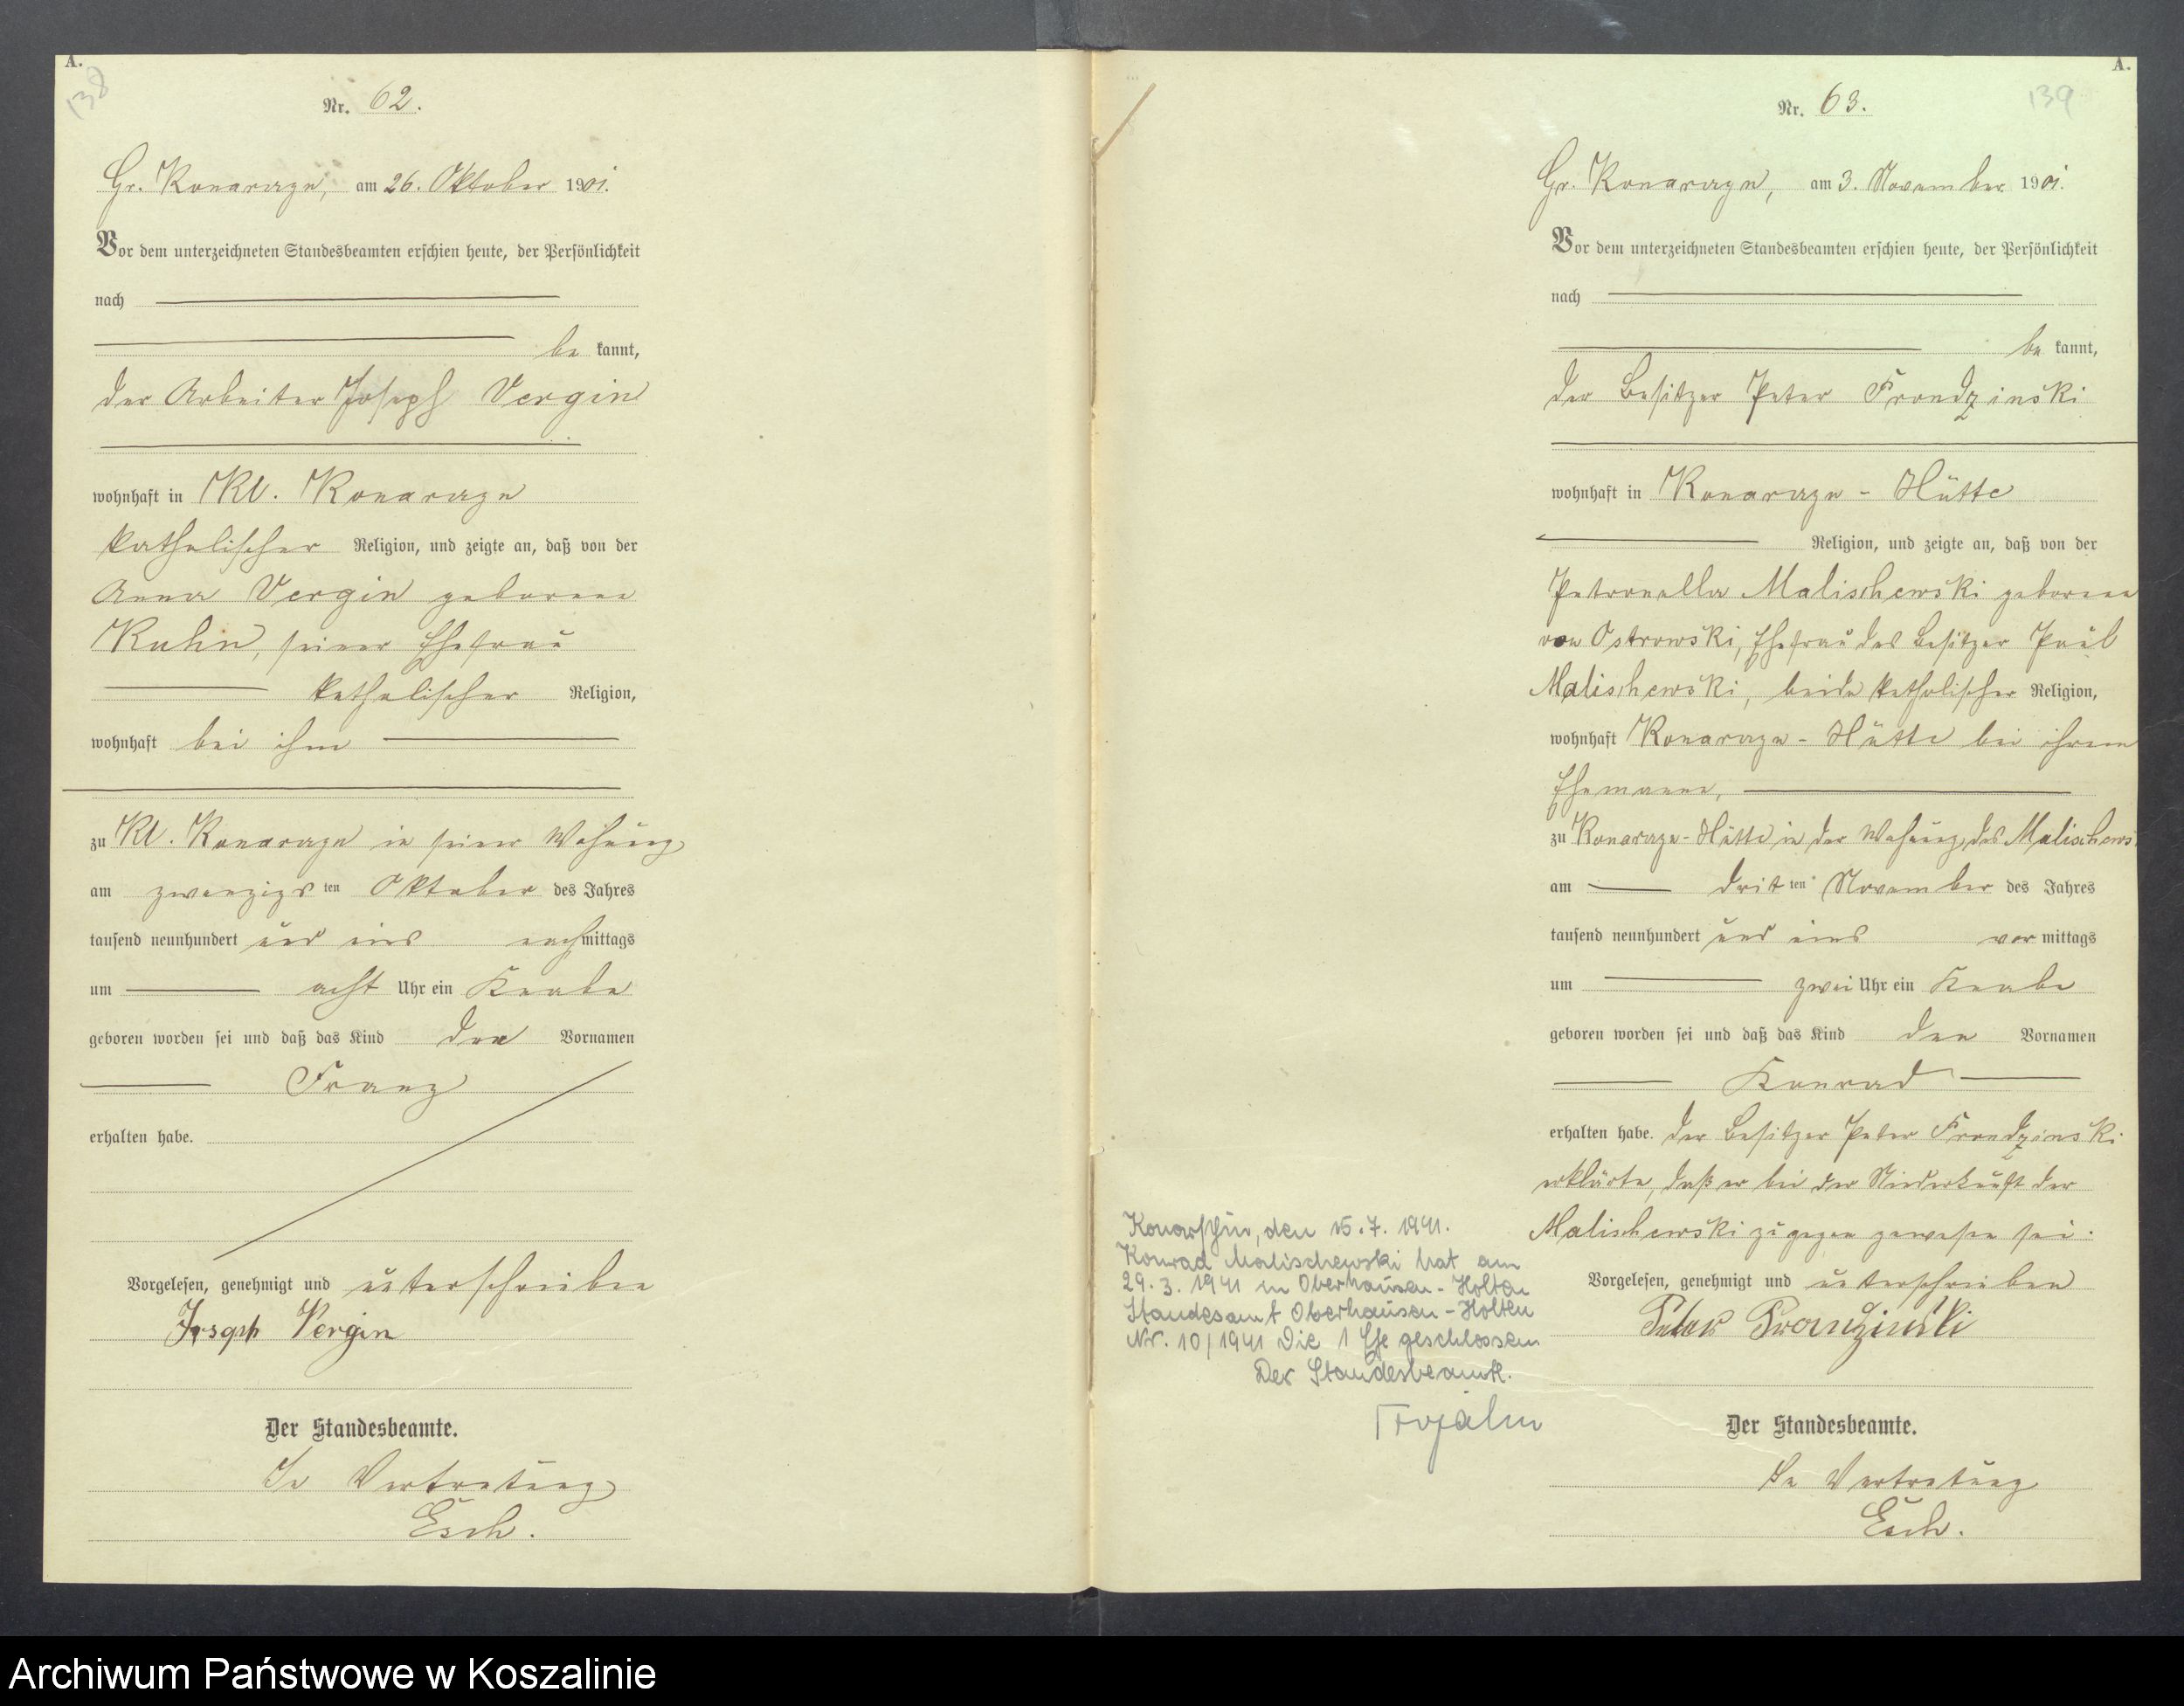 A.
138
Nr. 62.
Gr. Konarczyn, am 26. Oktober 1901.
Vor dem unterzeichneten Standesbeamten erschien heute, der Persönlichkeit
nach
be kannt,
der Arbeiter Joseph Vergin
wohnhaft in Kl. Konarczyn
katholischer Religion, und zeigte an, daß von der
Anna Vergin geborene
Kuhn, seiner Ehefrau
katholischer Religion,
wohnhaft bei ihm
zu Kl. Konarczyn in seiner Wohnung
am zwanzigsten Oktober des Jahres
tausend neunhundert und eins nachmittags
um acht Uhr ein Knabe
geboren worden sei und daß das Kind den Vornamen
Franz
erhalten habe.
Vorgelesen, genehmigt und unterschrieben
Joseph Vergin
Der Standesbeamte.
In Vertretung
Esch.
A.
139
Nr. 63.
Gr. Konarczyn, am 3. November 1901.
Vor dem unterzeichneten Standesbeamten erschien heute, der Persönlichkeit
nach
be kannt,
der Besitzer Peter Frondzinski
wohnhaft in Konarczyn-Hütte
Religion, und zeigte an, daß von der
Petronella Malischewski geborene
von Ostrowski, Ehefrau des Besitzer Paul
Malischewski, beide katholischer Religion,
wohnhaft Konarczyn-Hütte bei ihrem
Ehemanne,
zu Konarczyn-Hütte in der Wohnung des Malischews
am dritten November des Jahres
tausend neunhundert und eins vormittags
um zwei Uhr ein Knabe
geboren worden sei und daß das Kind den Vornamen
Konrad
erhalten habe. Der Besitzer Peter Frondzinski
erklärte, daß er bei der Niederkunft der
Malischewski zugegen gewesen sei.
Vorgelesen, genehmigt und unterschrieben
Peter
Der Standesbeamte.
In Vertretung
Esch.
Konarschin, den 15.7.1941.
Konrad Malischewski hat am
29.3.1941 in Oberhausen-Holten
Standesamt Oberhausen-Holten
Nr. 10/1941 Die 1 Ehe geschlossen
Der Standesbeamte.
Archiwum Państwowe w Koszalinie